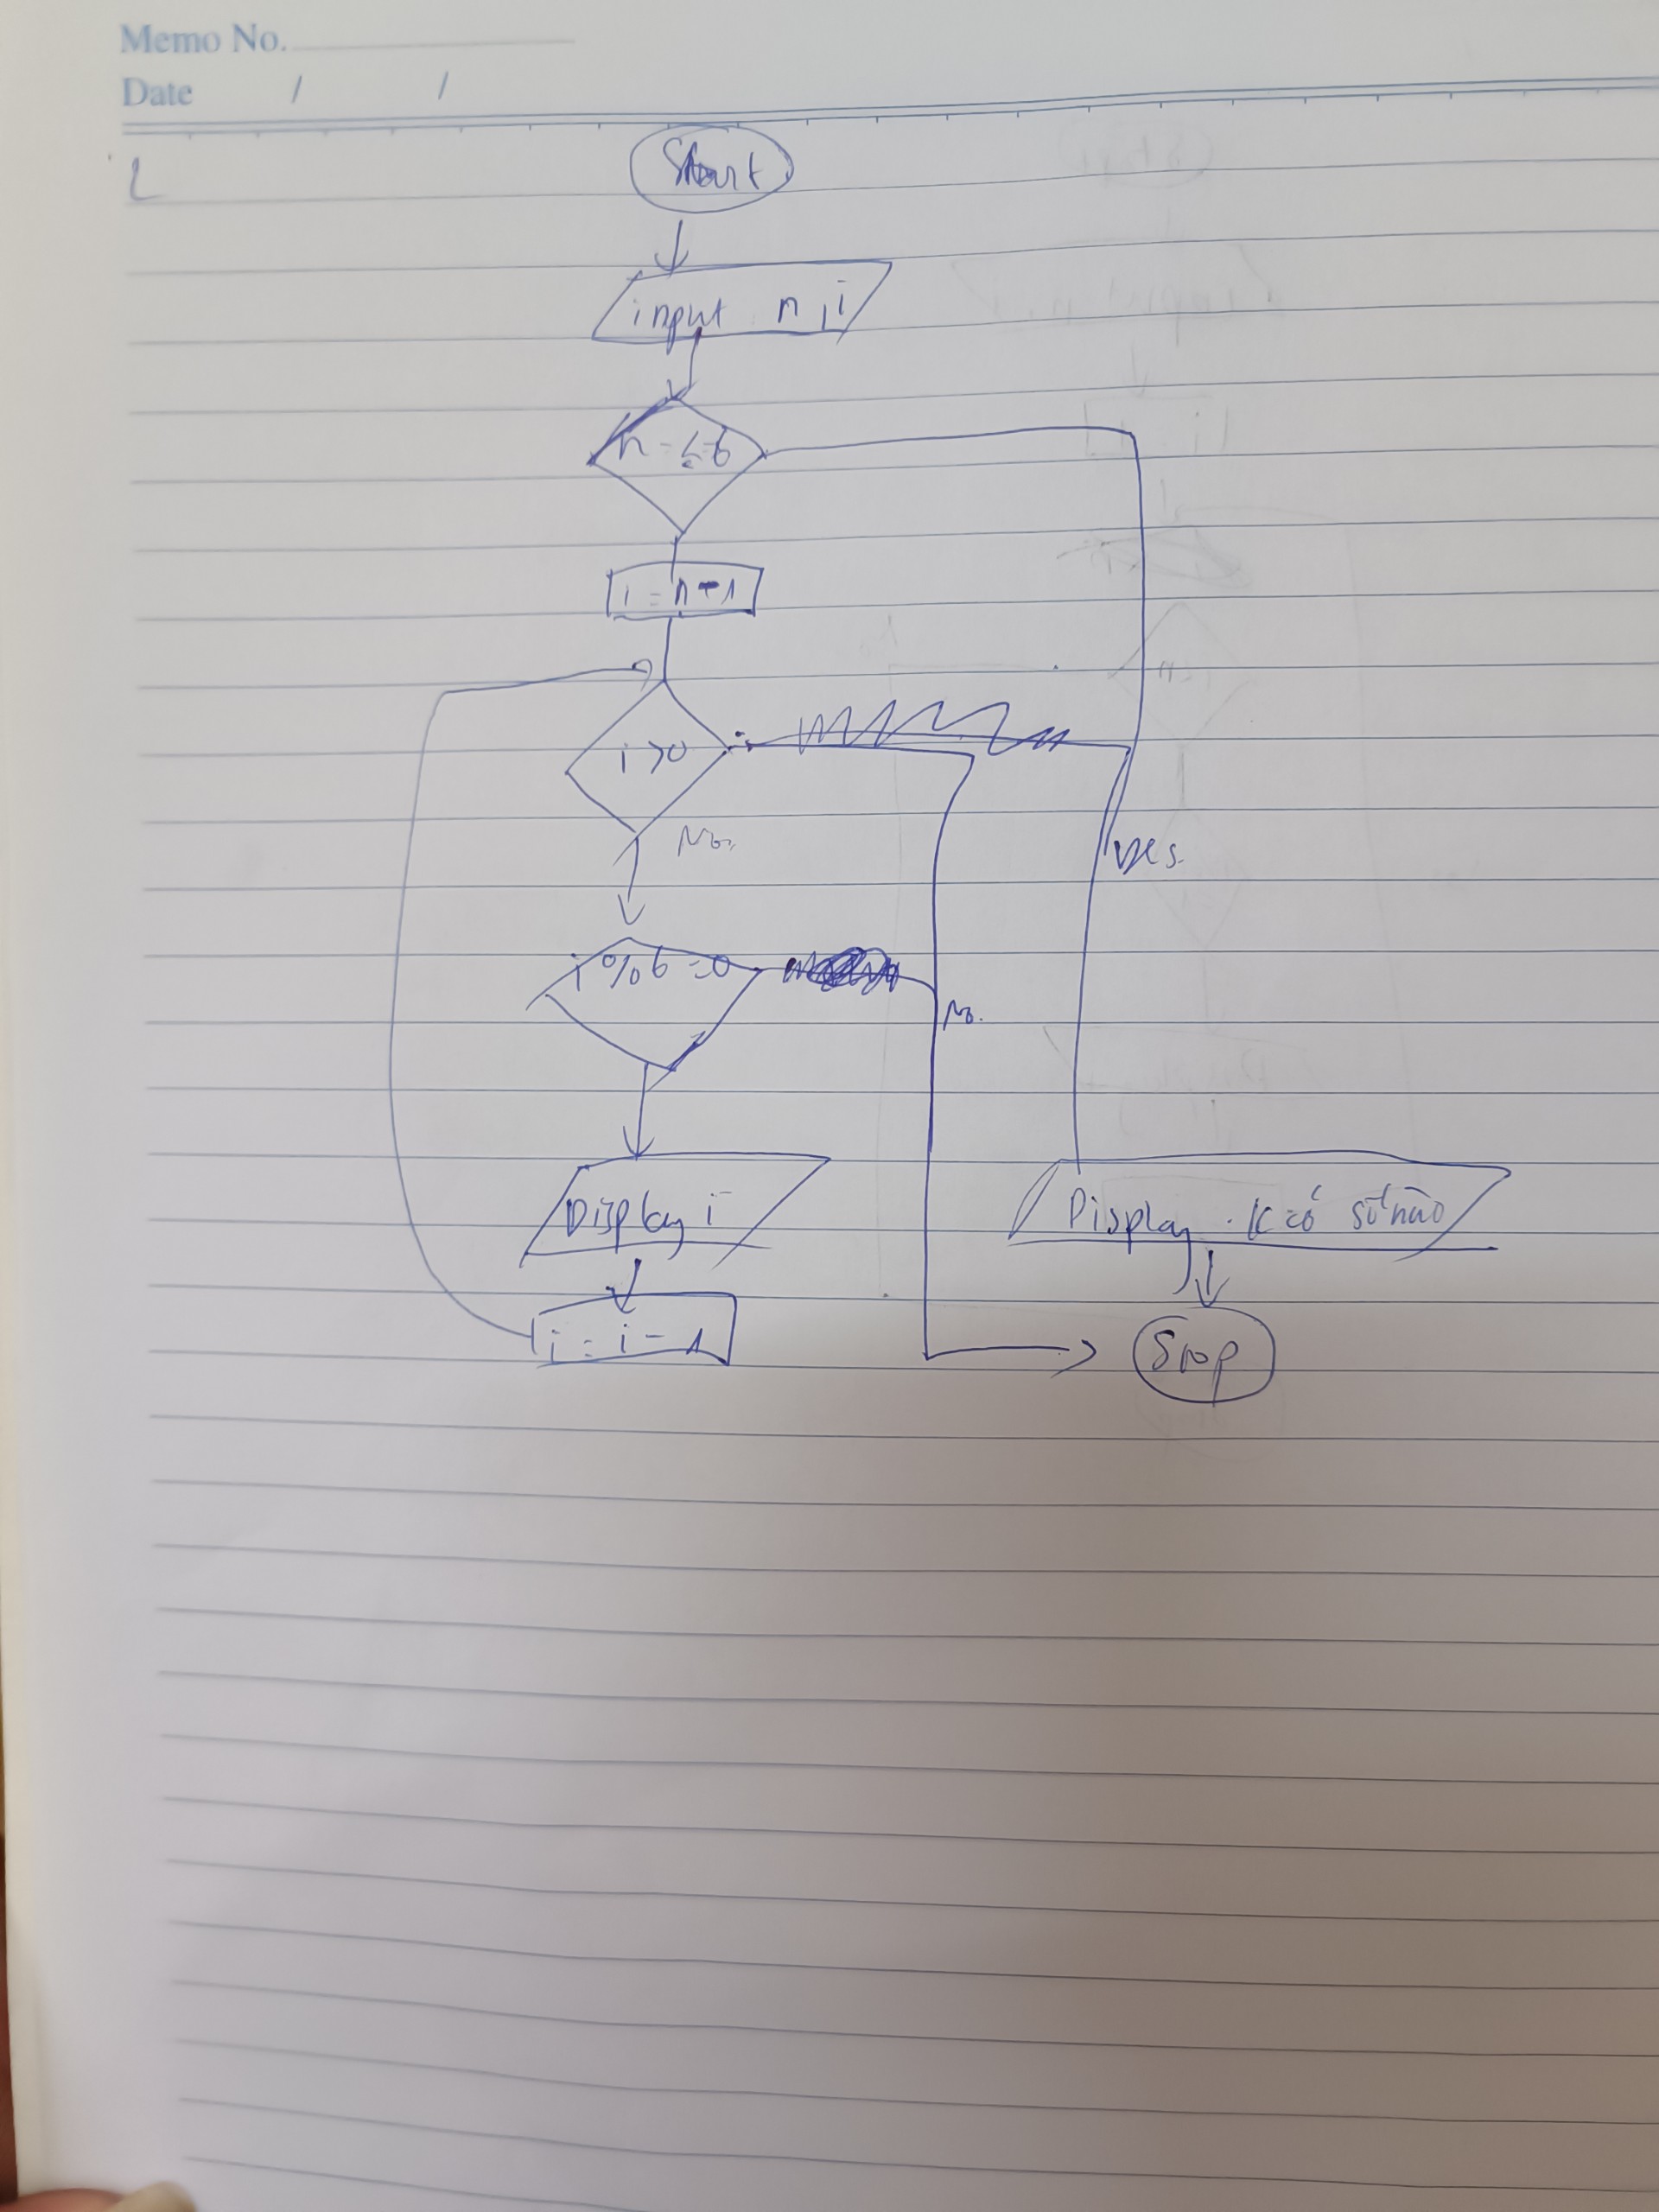 Memo No.
Date / /
Start
input n, i
n = ≤ 6
i = n - 1
i > 0
No.
yes.
i % 6 = 0
No.
Display i
Display . K có số nào
i = i - 1
Stop